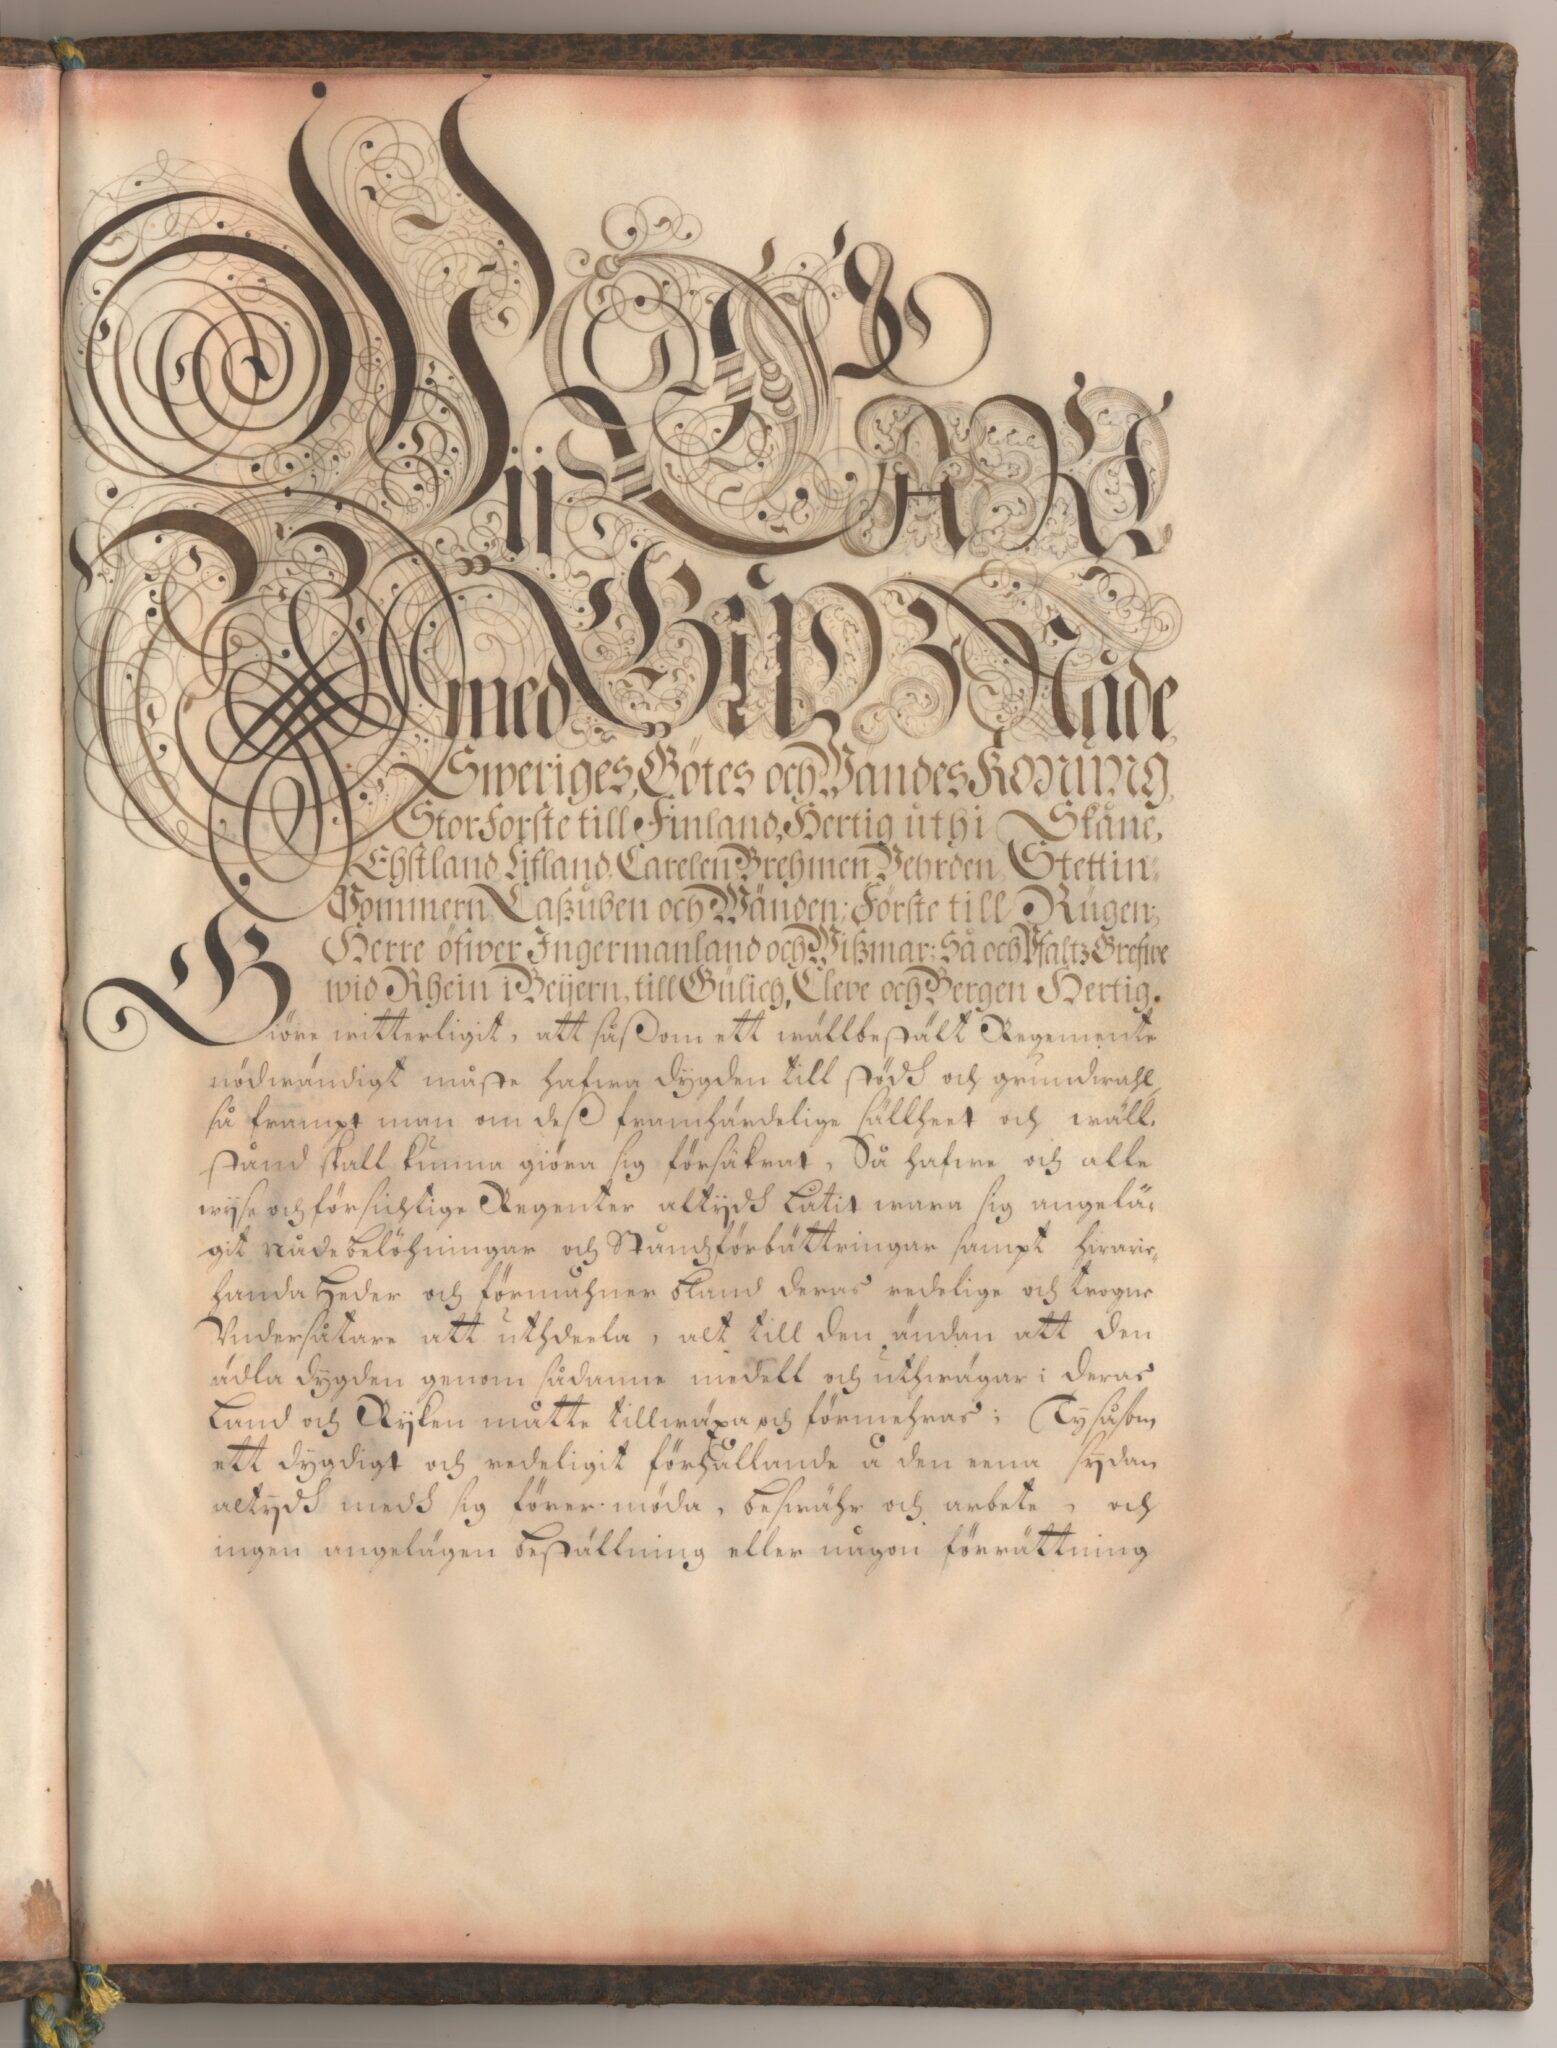 Wii CARL
med Gudz Nåde
Sweriges, Götes och Wändes Konung,
Storförste till Finland, Hertig uthi Skåne,
Ehstland, Lifland, Carelen, Brehmen, Vehrden, Stettin-
Pommern, Caßuben och Wänden; Förste till Rügen;
Herre öfwer Ingermanland och Wißmar: Så och Pfaltz Grefwe
wid Rhein i Beijern, till Gülich, Cleve och Bergen Hertig.
Giöre witterligit, att såßom ett wällbestält Regemente
nödwändigt måste hafwa dygden till stödh och grundwahl,
så frampt man om deß framhärdelige sällheet och wäll-
stånd skall kunna giöra sig försäkrat, Så hafwe och alle
wyse och försichtige Regenter altydh låtit wara sig angelä-
git nådebelöhningar och Ståndzförbättringar sampt hwarie-
handa Heder och förmohner bland deras redelige och trogne
Undersåtare att uthdeela, alt till den ändan att den
ädla dygden genom sådanne medell och uthwägar i deras
Land och Ryken måtte tillwäxa och förmehras; Ty såsom
ett dygdigt och redeligit förhållande å den eena sydan
altydh medh sig förer möda, beswähr och arbete, och
ingen angelägen beställning eller någon förrättning